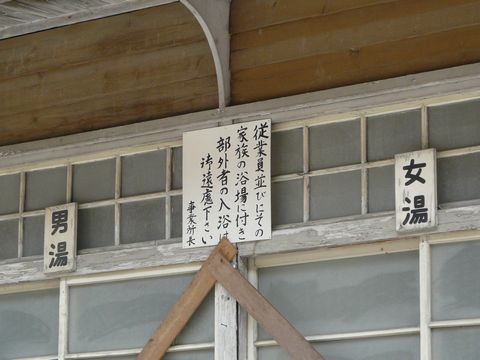 従業員並びにその
家族の浴場に付き
部外者の入浴は
御遠慮下さい
事業所長
女湯
男湯